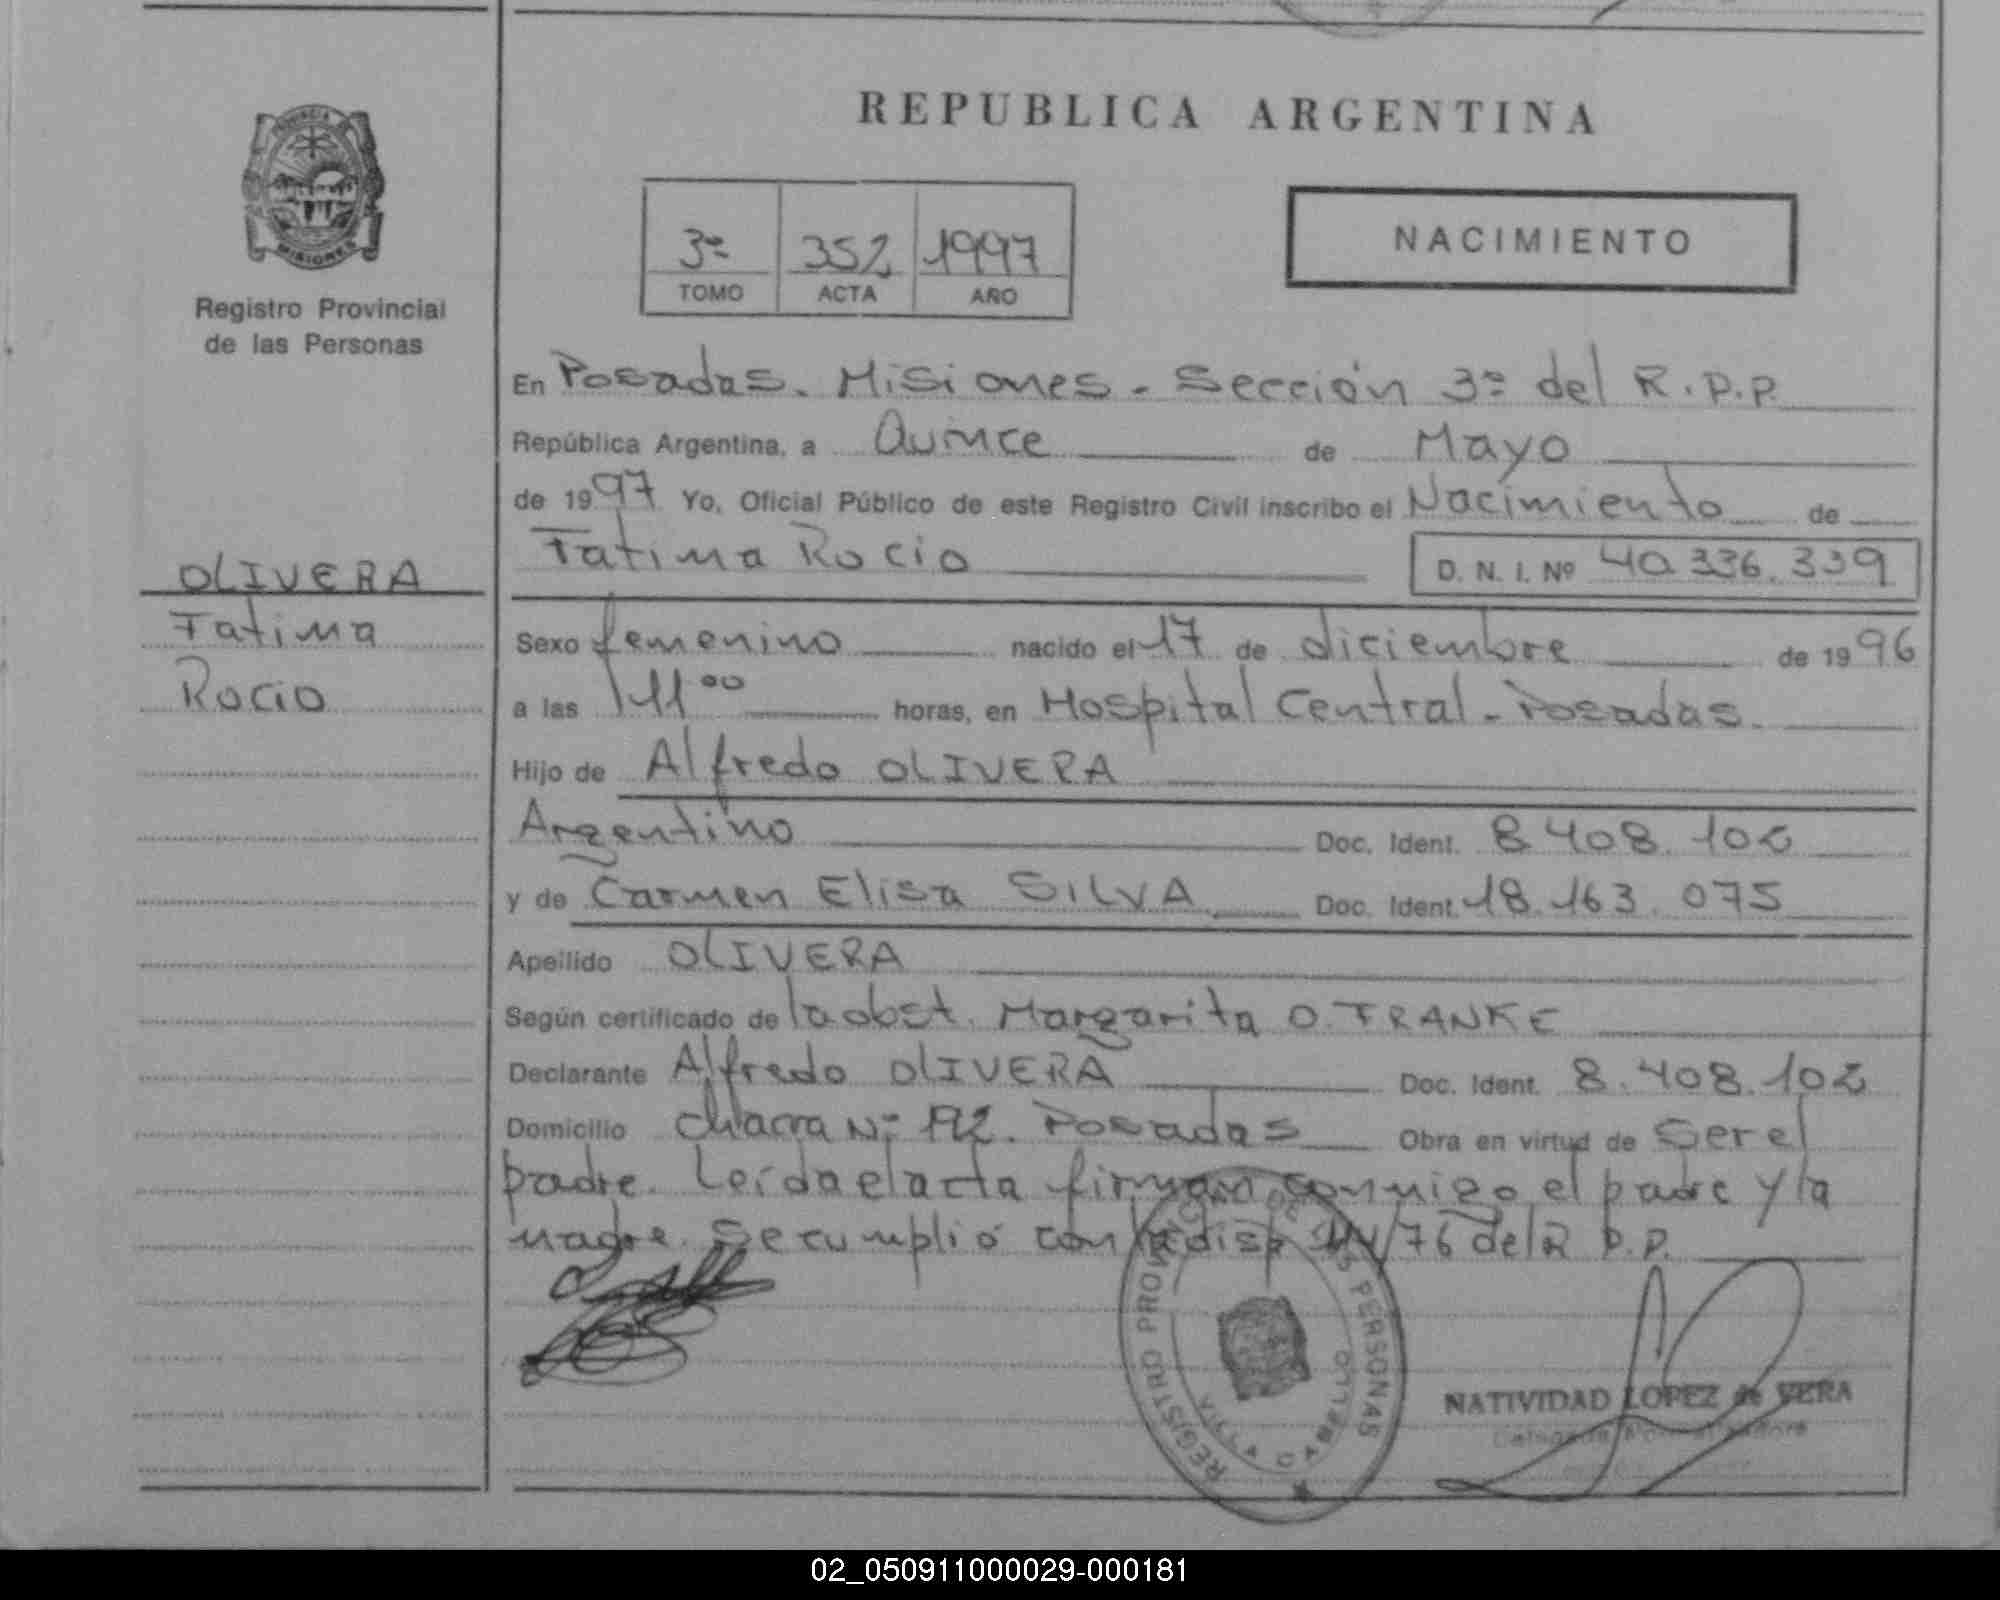 REPUBLICA ARGENTINA
PROVINCIA DE
MISIONES
Registro Provincial
de las Personas
3º 352 1997
TOMO ACTA AÑO
NACIMIENTO
En Posadas. Misiones. Sección 3º del R.P.P.
República Argentina, a Quince de Mayo
de 1997 Yo, Oficial Público de este Registro Civil inscribo el Nacimiento de
Fatima Rocio D. N. I. Nº 40.336.339
OLIVERA
Fatima
Rocio
Sexo femenino nacido el 17 de diciembre de 1996
a las 11 00 horas, en Hospital Central. Posadas.
Hijo de Alfredo OLIVERA
Argentino Doc. Ident. 8.408.102
y de Carmen Elisa SILVA Doc. Ident. 18.163.075
Apellido OLIVERA
Según certificado de la obst. Margarita O. FRANKE
Declarante Alfredo OLIVERA Doc. Ident. 8.408.102
Domicilio chacra Nº 192. Posadas Obra en virtud de ser el
padre. Leída el acta firman conmigo el padre y la
madre. Se cumplió con la disp. /76 del R.P.P.
REGISTRO PROVINCIAL DE LAS PERSONAS
VILLA CABELLO
NATIVIDAD LOPEZ de VERA
02_050911000029-000181